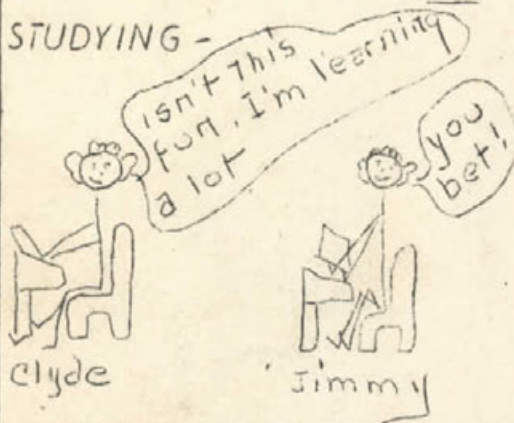 STUDYING -
isn't this
fun. I'm learning
a lot
you
bet!
Clyde
Jimmy